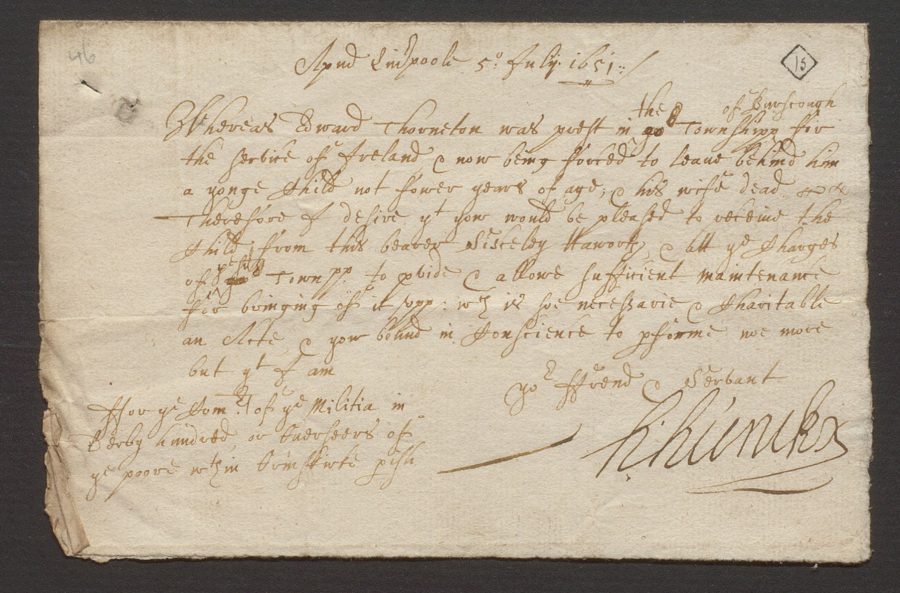 46
15
Apud Liverpoole 5º July 1651:/
the of Burscough
Whereas Edward Thorneton was prest in yo Townshipp for
the service of Ireland & now being forced to leave behind him
a yonge Child not fower yeares of age, & his wife dead
Therefore I desire yt yow would be pleased to receive the
Child from this bearer Sisceley Haworth, & att ye Charges
of ye sd Townpp. to pvide & allowe sufficient maintenance
for bringing of it upp: wch is soe necessarie & Charitable
an Acte, & yow bound in Conscience to pforme noe more
but yt I am
yor ffrend & Servant
ffor ye Comrs of ye Militia in
Derby hundred or Overseers of
ye poore wthin Ormskirke pish